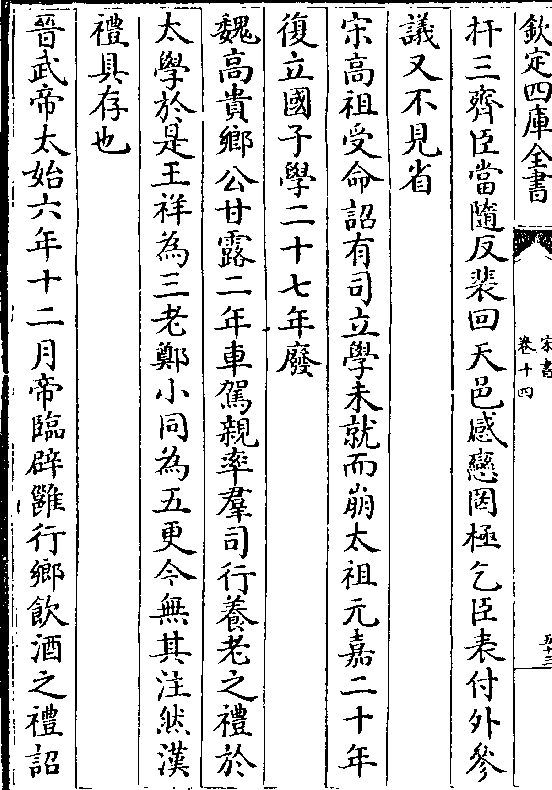 欽定四庫全書
宋書
卷十四
五十三
扞三齊臣當隨反裴回天邑感戀罔極乞臣表付外參
議又不見省
宋高祖受命詔有司立學未就而崩太祖元嘉二十年
復立國子學二十七年廢
魏高貴鄉公甘露二年車駕親率羣司行養老之禮於
太學於是王祥為三老鄭小同為五更今無其注然漢
禮具存也
晉武帝太始六年十二月帝臨辟雝行鄉飲酒之禮詔